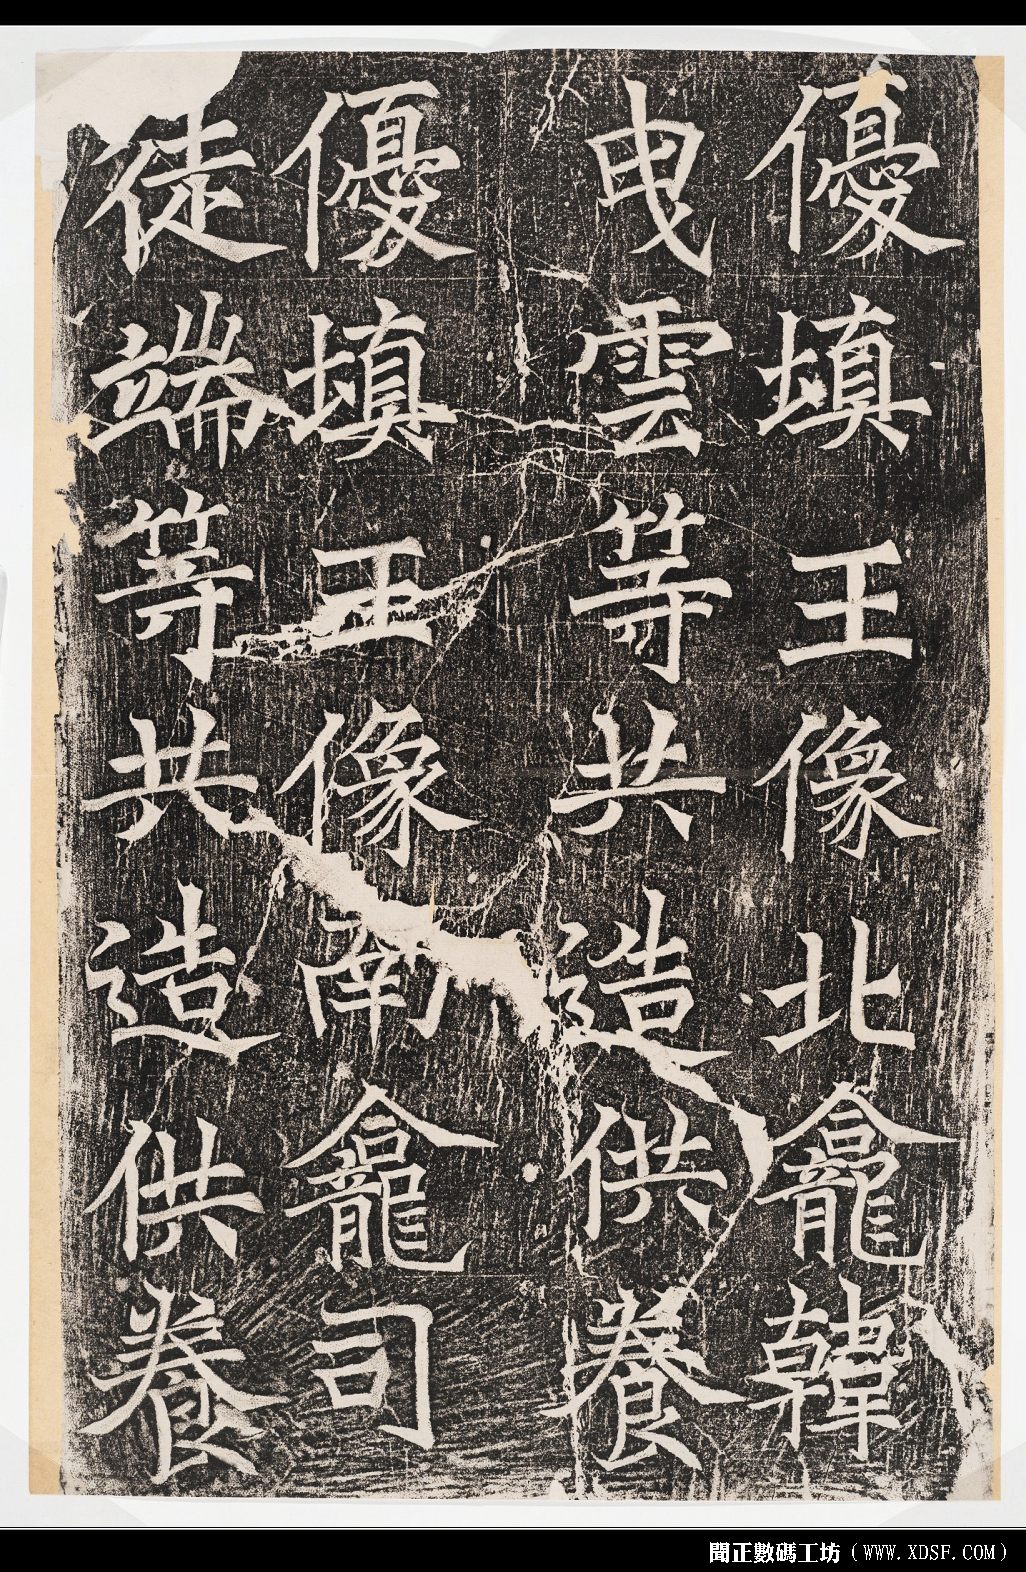 優填王像北龕韓
曳雲等共造供養
優填王像南龕司
徒端等共造供養
聞正數碼工坊（WWW.XDSF.COM）